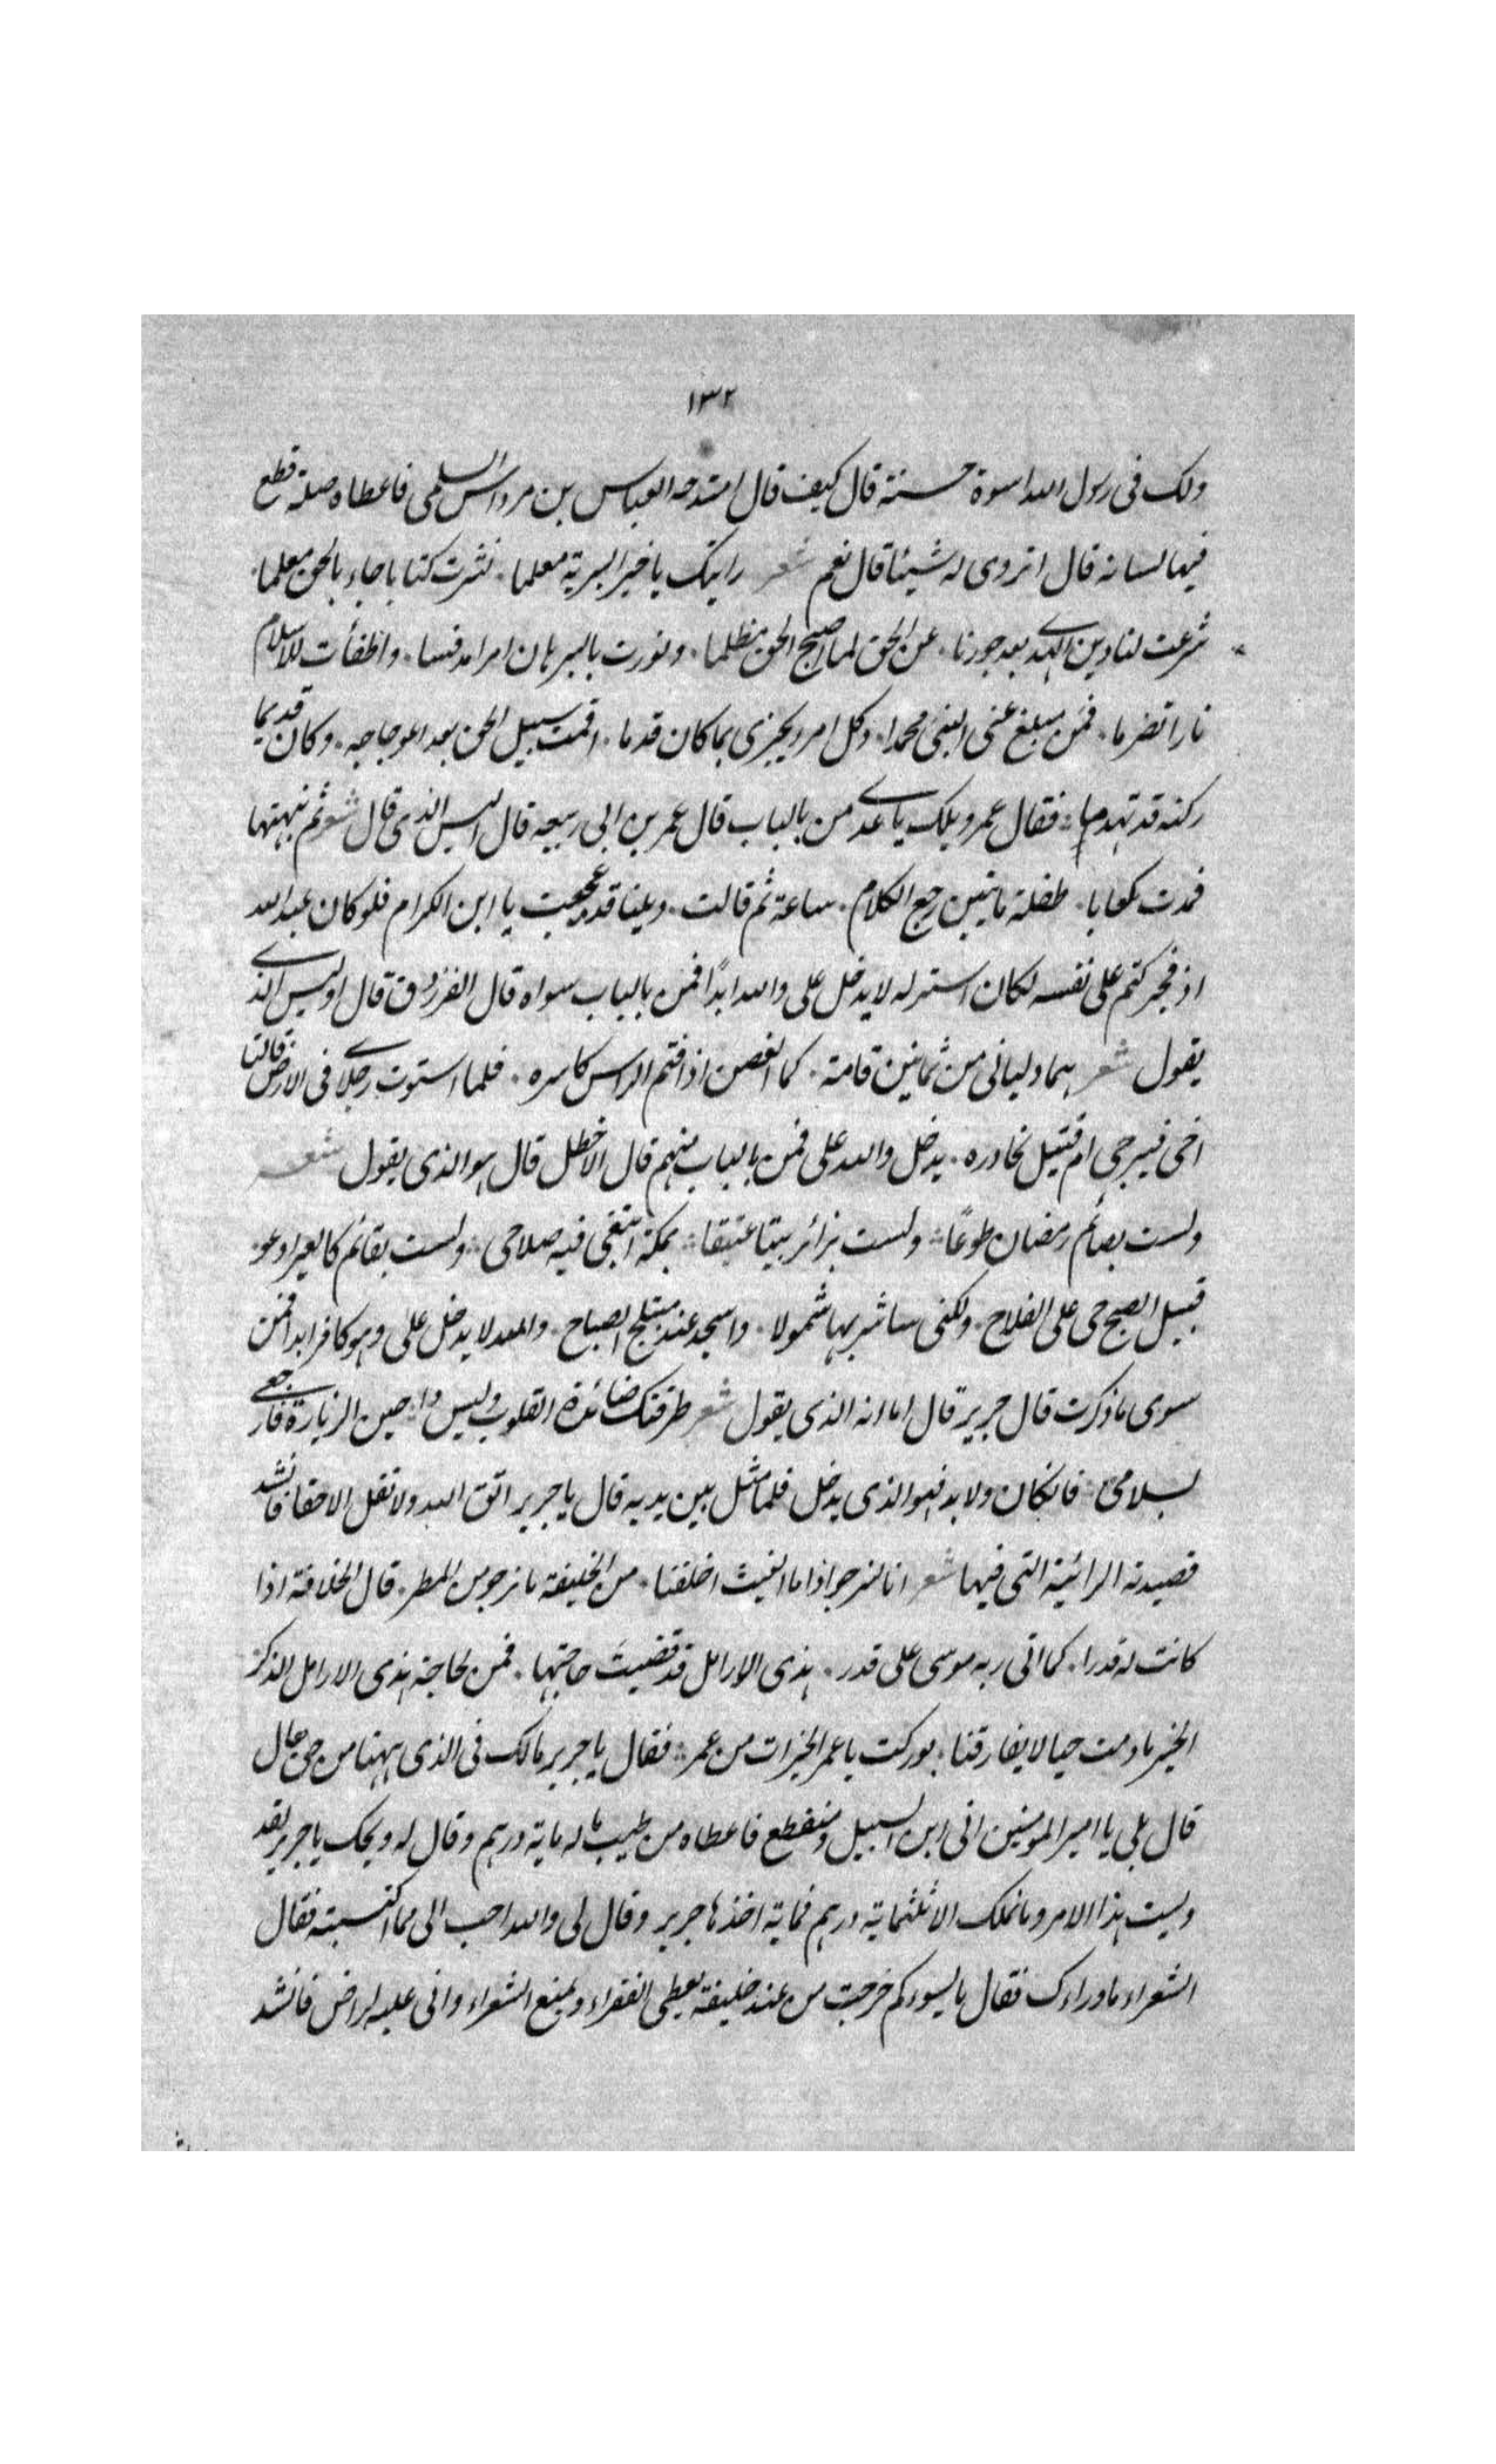 ١٣٢
ولك فى رسول الله اسوة حسنة قال كيف قال امتدحه العباس بن مرداس السلمى فاعطاه صلة قطع
فيها لسانه قال اتروى له شيئا قال نعم شعر رايتك يا خير البرية معلما ٠ نشرت كتابا جاء بالحق معلما ٠
شرعت لنا دين الهدى بعد جورنا ٠ عن الحق لما اصبح الحق مظلما ٠ ونورت بالبرهان امرا مدنسا ٠ واطفأت للاسلام
نارا تضرما ٠ فمن مبلغ عنى النبى محمدا ٠ وكل امرء يجزى بما كان قدما ٠ اقمت سبيل الحق بعد اعوجاجه ٠ وكان قديما
ركنه قد تهدما ؞ فقال عمر ويلك يا عدى من بالباب قال عمر بن ابى ربيعه قال اليس الذى قال شعر ثم نبهتها
فمدت كعابا ٠ طفلة ما تبين رجع الكلام ٠ ساعة ثم قالت ٠ ويلنا قد عجبت يا ابن الكرام فلو كان عبد الله
اذ فجر كتم على نفسه لكان استر له لا يدخل على والله ابدًا فمن بالباب سواه قال الفرزدق قال اوليس الذى
يقول شعر هما دليانى من ثمانين قامة ٠ كما الغصن اذا فتم الراس كاسره ٠ فلما استوت رجلاى فى الارض قالتا
احى فيرجى ام قتيل نحاوره ٠ يدخل والله على فمن بالباب منهم قال الاخطل قال هو الذى يقول شعر
ولست بصائم رمضان طوعًا ؞ ولست بزائر بيتا عتيقا ؞ بمكة ابتغى فيه صلاحى ؞ ولست بقائم كالعير ادعو
قبيل الصبح حى على الفلاح ٠ ولكنى ساشربها شمولا ٠ واسجد عند منبلج الصباح ٠ والله لا يدخل على وهو كافر ابدا فمن
سوى ما ذكرت قال جرير قال اما انه الذى يقول شعر طرقتك صائدة القلوب وليس ذا ؞ حين الزيارة فارجعى
بسلامى ؞ فان كان ولا بد فهو الذى يدخل فلما مثل بين يديه قال يا جرير اتق الله ولا تقل الا حقا فانشد
قصيدته الرائية التى فيها شعر انا لنرجو اذا ما الغيث اخلفنا ٠ من الخليفة ما نرجو من المطر ٠ قال الخلافة اذا
كانت له قدرا ٠ كما اتى ربه موسى على قدر ٠ هذى الارامل قد قضيتَ حاجتها ٠ فمن لحاجة هذى الارامل الذكر
الخير ما دمت حيا لا يفارقنا ٠ بوركت يا عمر الخيرات من عمر ؞ فقال يا جرير مالك فى الذى بيتنا من حق قال
قال بلى يا امير المومنين انى ابن السبيل ومنقطع فاعطاه من طيب ماله ماية درهم وقال له ويحك يا جرير لقد
وليت هذا الامر وما نملك الا ثلثماية درهم فماية اخذها جرير وقال لى والله احب الى مما اكتسبته فقال
الشعراء ما وراءك فقال ما يسوءكم خرجت من عند خليفة يعطى الفقراء ويمنع الشعراء وانى عليه لراض فانشد